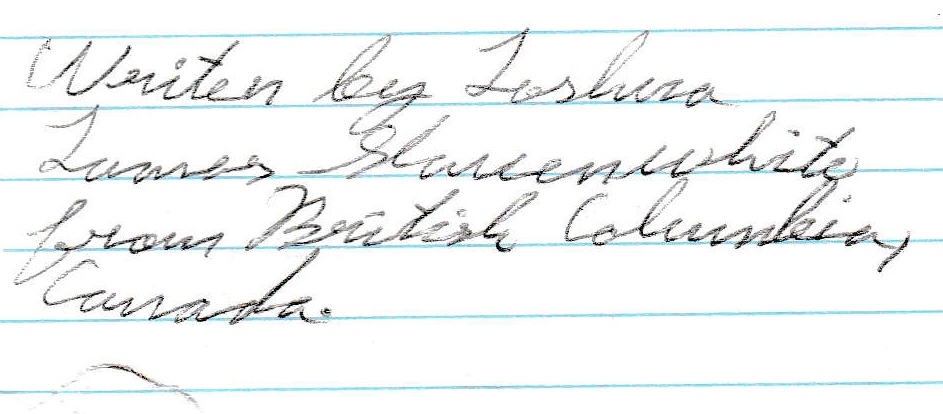 Writen by Joshua
James
from British Columbia,
Canada.